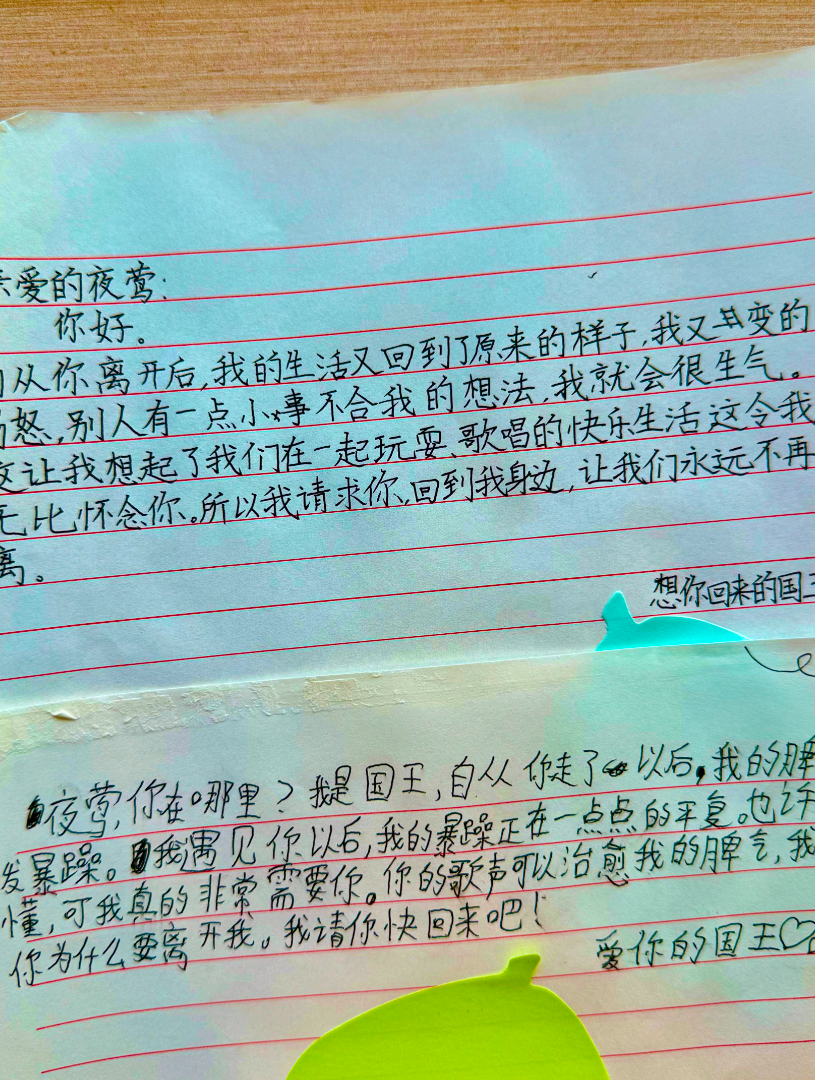 爱的夜莺：
你好。
从你离开后，我的生活又回到了原来的样子，我又变的
怒，别人有一点小事不合我的想法，我就会很生气。
让我想起了我们在一起玩耍、歌唱的快乐生活这令我
无比怀念你。所以我请求你，回到我身边，让我们永远不再
离。
想你回来的国王
夜莺，你在哪里？我是国王，自从你走了以后，我的脾
发暴躁。我遇见你以后，我的暴躁正在一点点的平复。也许
懂，可我真的非常需要你。你的歌声可以治愈我的脾气，我
你为什么要离开我。我请你快回来吧！
爱你的国王♡